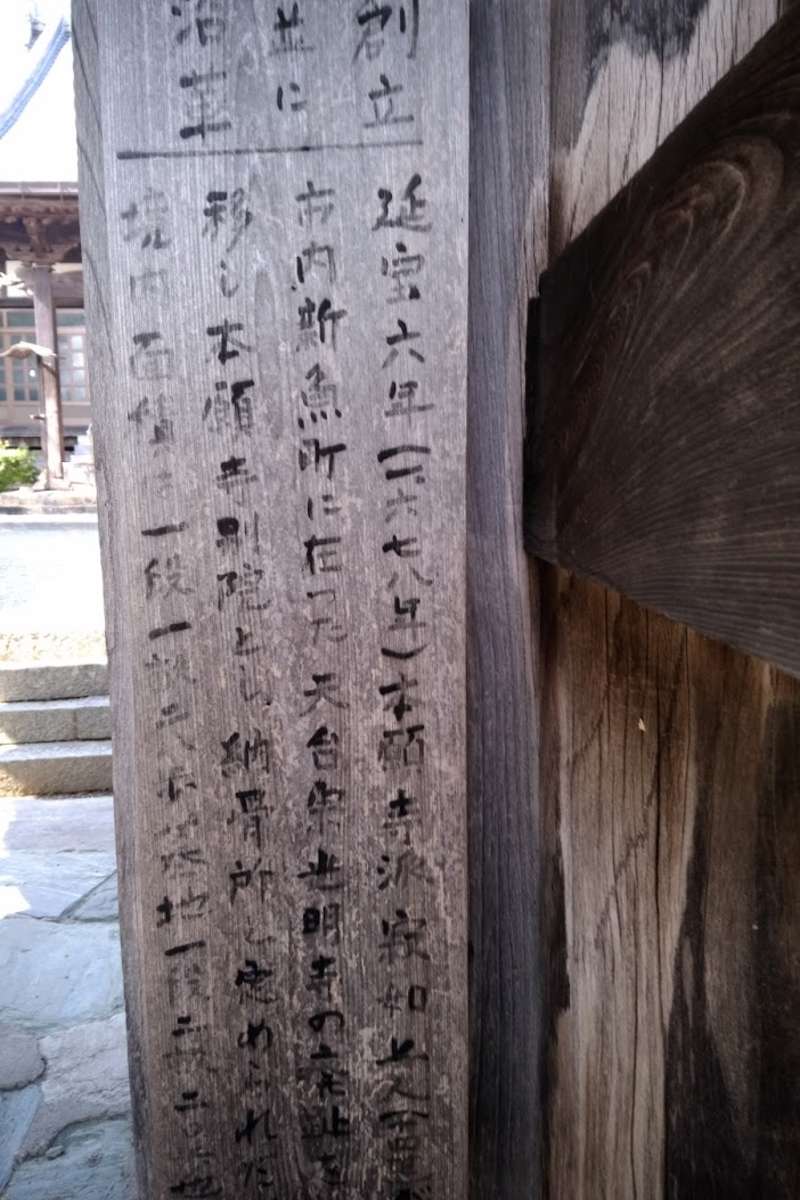 創立
並に
沿革
延宝六年(一六七八年)本願寺派寂如上人
市内新魚町に在った天台宗光明寺の
移し本願寺別院とし納骨所と定められた
境内面積は一段一畝
地一段